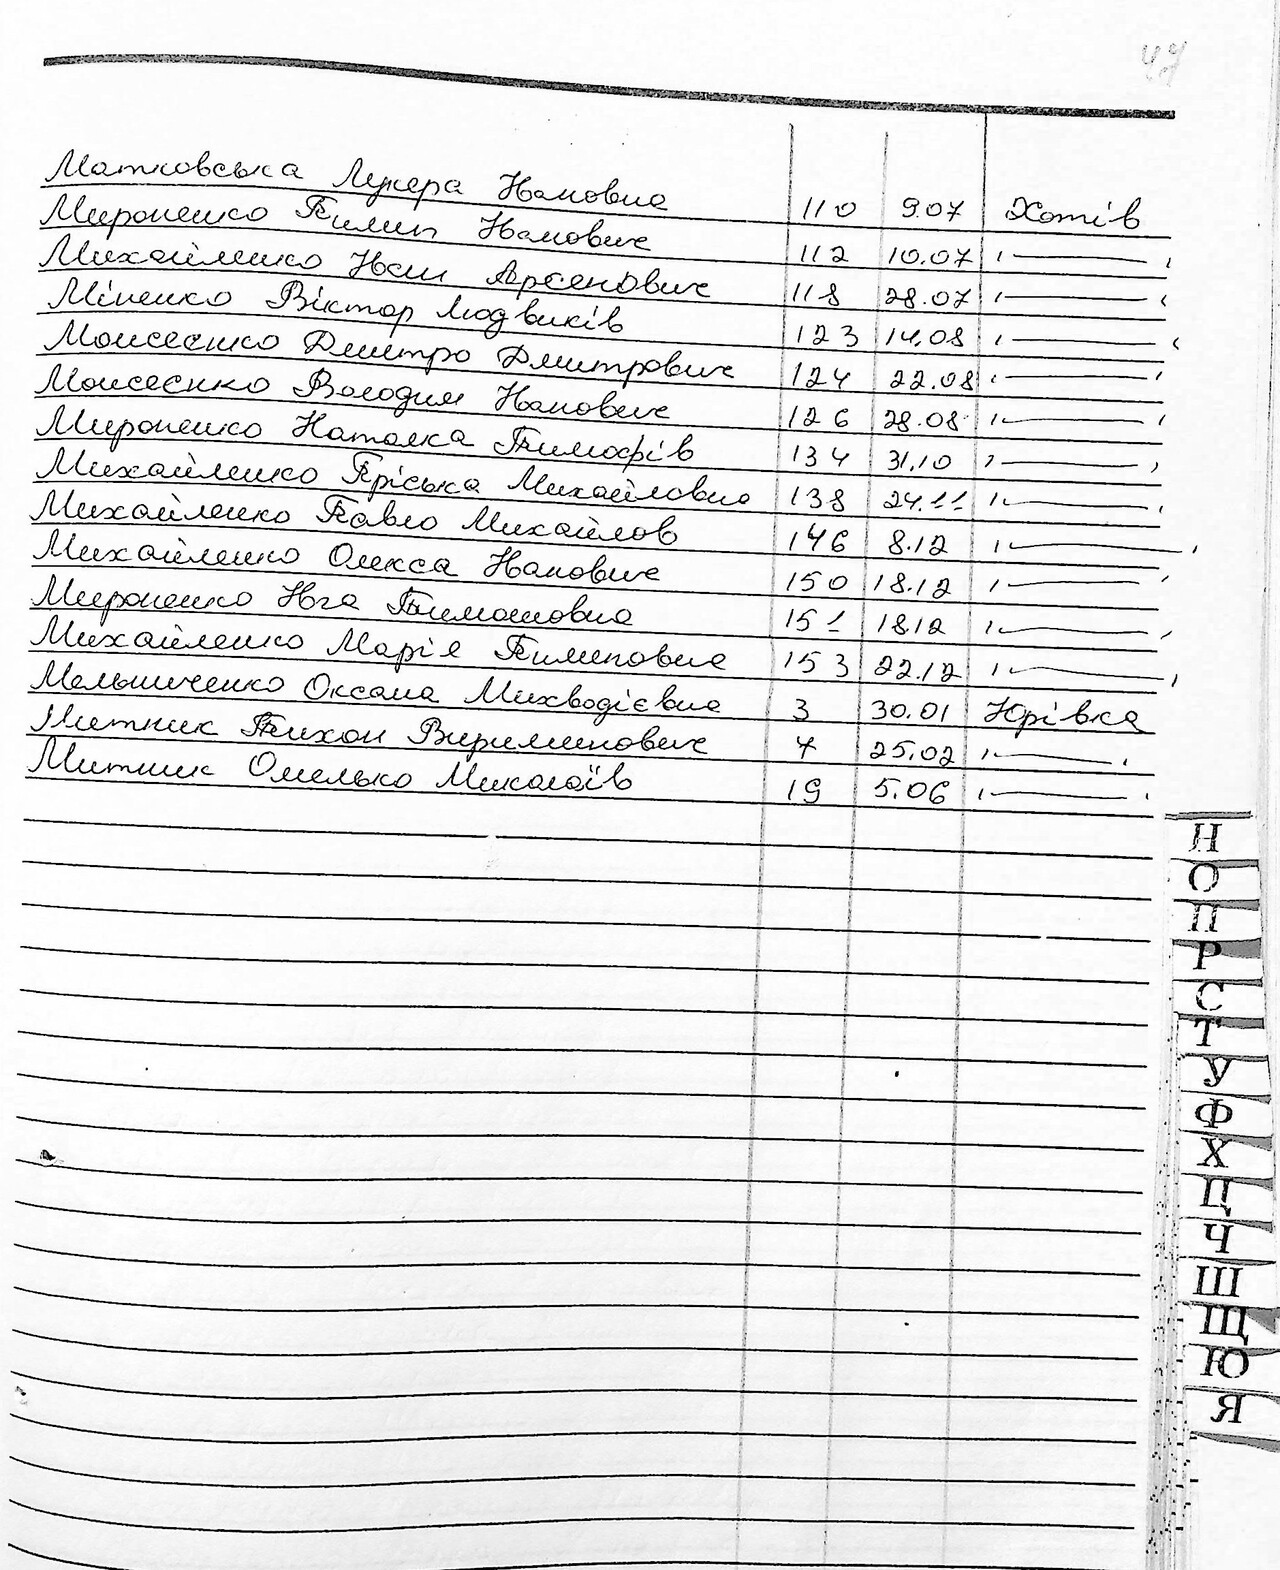 47
Матковська Лукера Івановна 110 9.07 Хотів
Мироненко Пилип Іванович 112 10.07 "—"
Михайленко Іван Арсенович 118 28.07 "—"
Міненко Віктор Людвиків 123 14.08 "—"
Моисеєнко Дмитро Дмитрович 124 22.08 "—"
Моисеєнко Володим Іванович 126 28.08 "—"
Мироненко Наталка Тимофів 134 31.10 "—"
Михайленко Пріська Михайловна 138 24.11 "—"
Михайленко Павло Михайлов 146 8.12 "—"
Михайленко Олекса Іванович 150 18.12 "—"
Мироненко Івга Тимошовна 151 18.12 "—"
Михайленко Марія Пилиповна 153 22.12 "—"
Мельниченко Оксана 3 30.01 Юрівка
Митник Тихон 4 25.02 "—"
Митник Омелько Миколаїв 19 5.06 "—"
Н
О
П
Р
С
Т
У
Ф
Х
Ц
Ч
Ш
Щ
Ю
Я